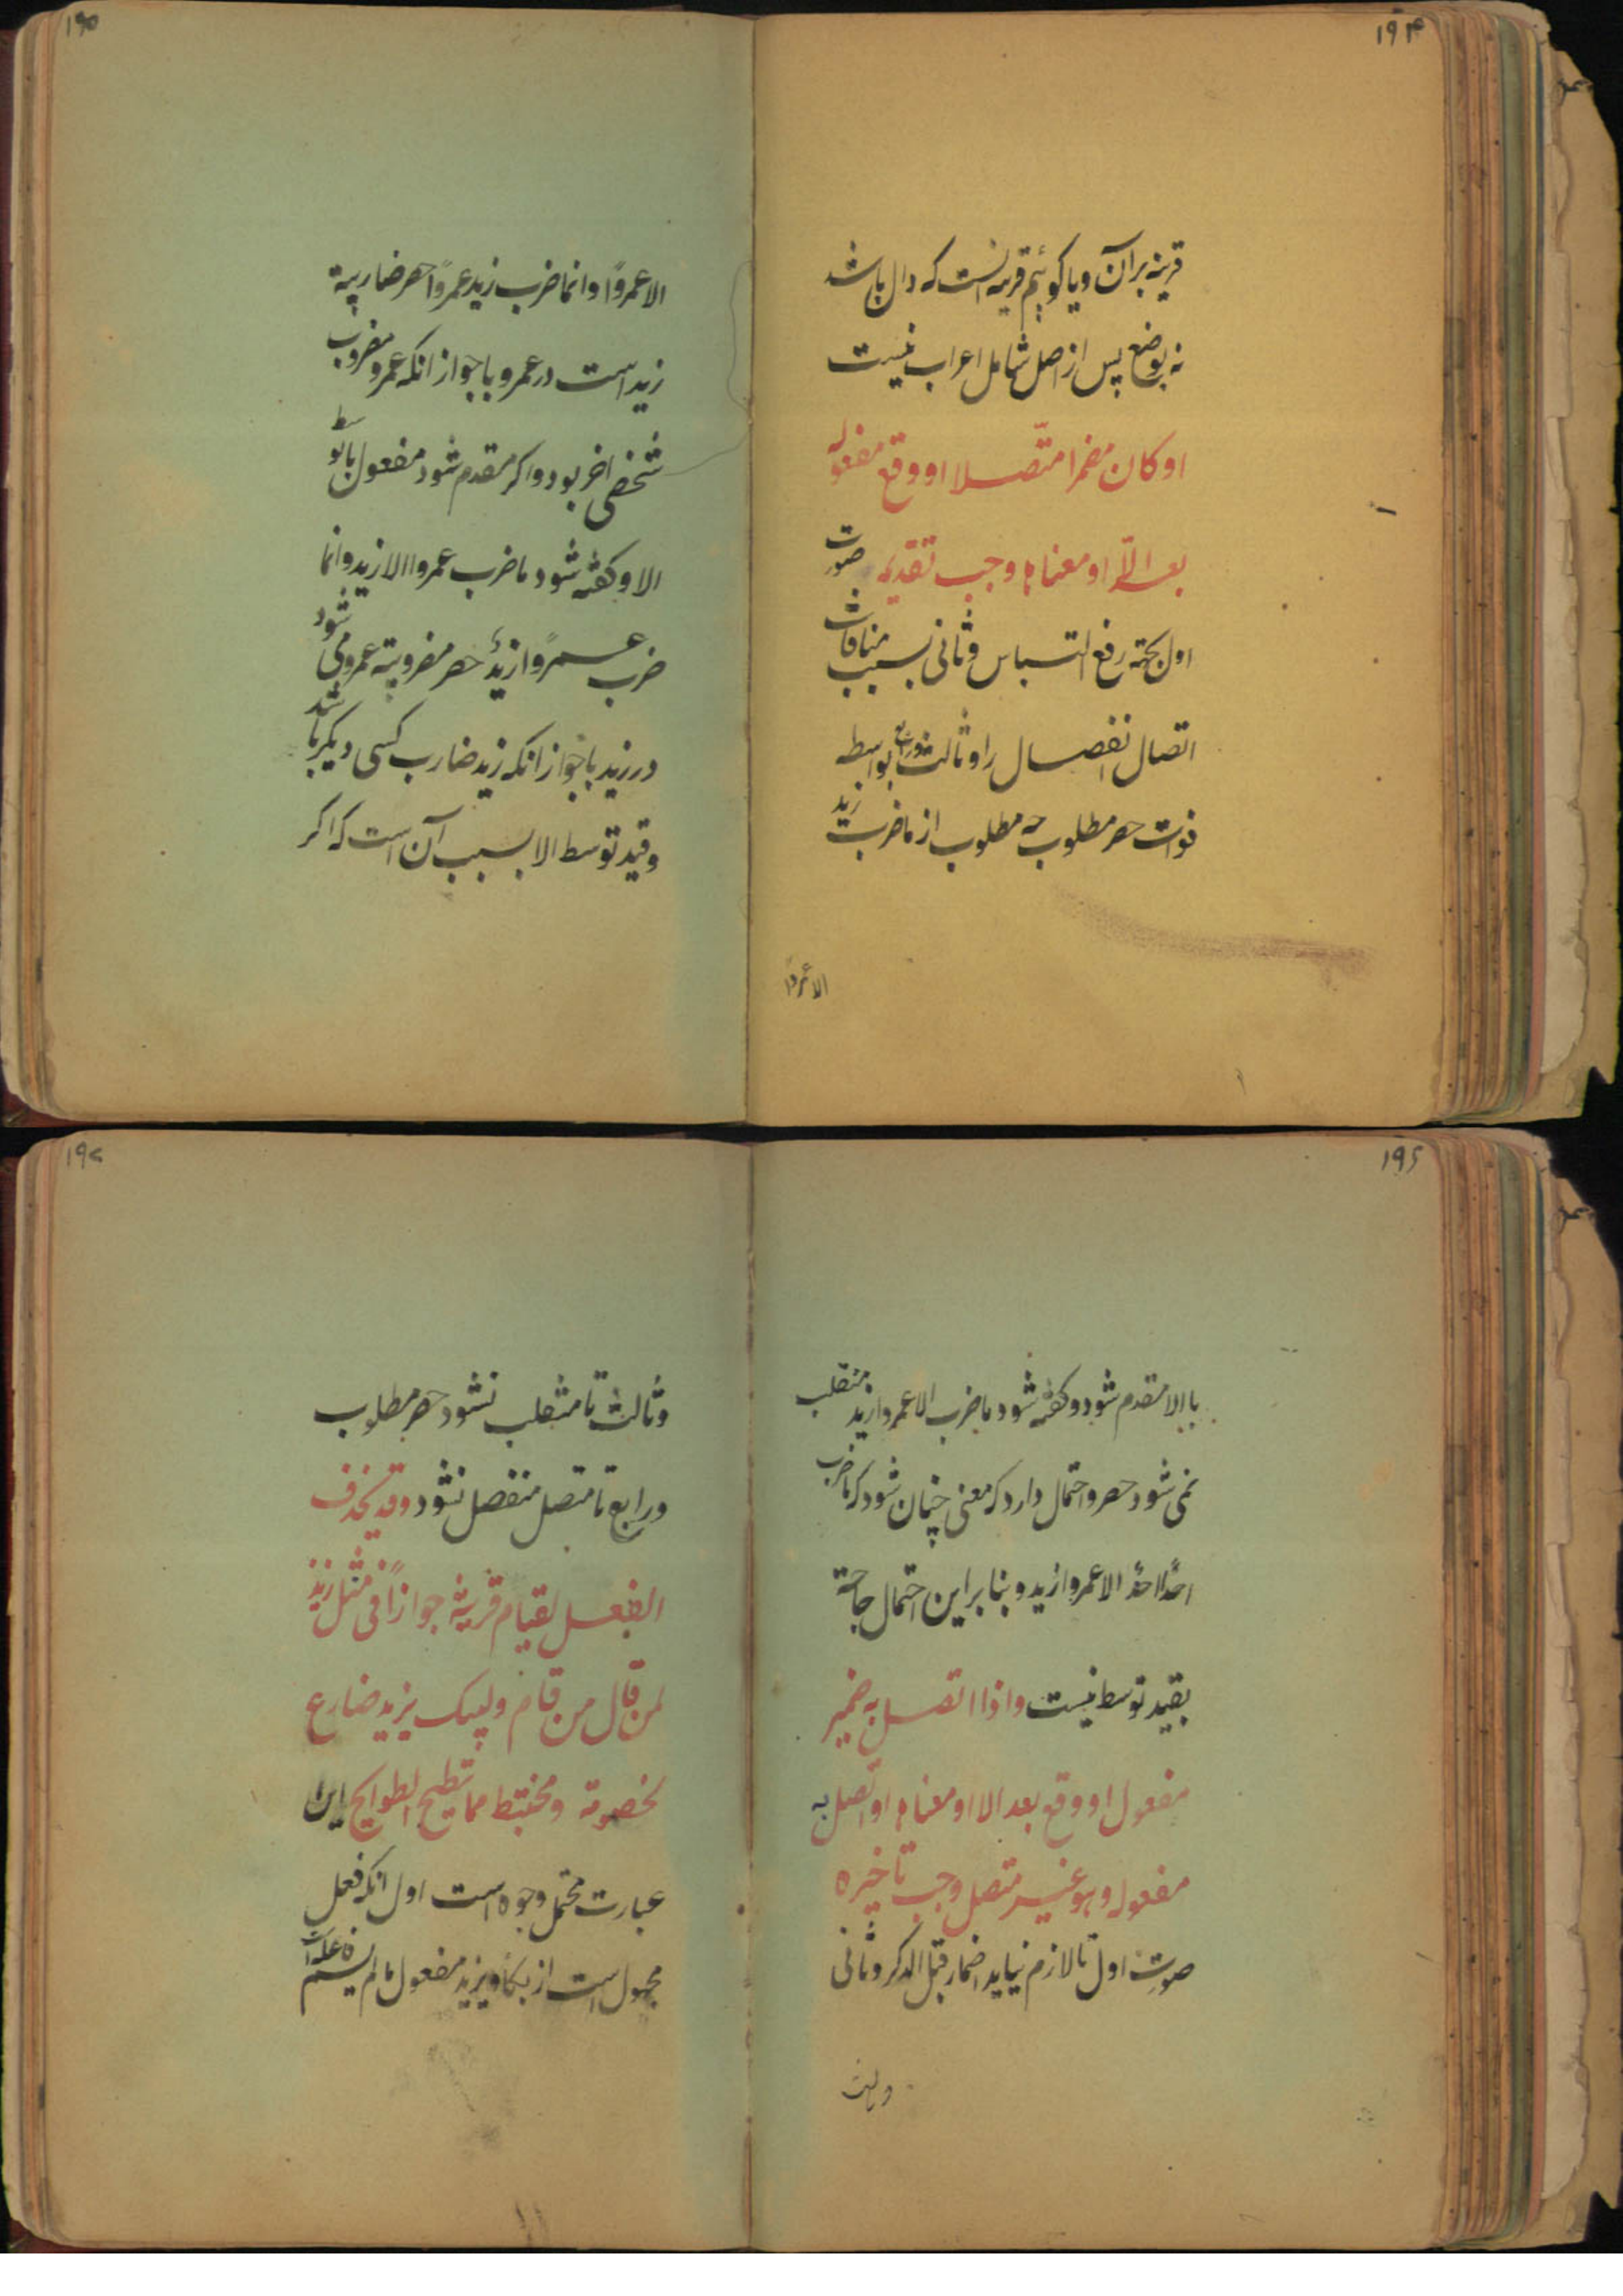 ۱۹۴
قرینه بر آن و یا کوئیم قرینه انست که دال باشد
نه بوضع پس از اصل شامل اعراب نیست
او کان مضمرا متّصلا او وقع مفعوله
بعد الّا او معناها وجب تقدیمه صورت
اول بجهته رفع التباس و ثانی بسبب منافات
اتصال انفصال را و ثالث و رابع بواسطه
فوت حصر مطلوب چه مطلوب از ماضرب زید
الا عمروًا
۱۹۵
الا عمروًا و انما ضرب زید عمروًا حصر ضاربیة
زید است در عمرو با جواز انکه عمرو مضروب
شخصی اخر بود و اکر مقدم شود مفعول با توسط
الا و کفته شود ماضرب عمروا الا زید و انما
ضرب عمروًا زیدٌ حصر مضروبیته عمرو می شود
در زید با جواز انکه زید ضارب کسی دیکر باشد
و قید توسط الا بسبب آن است که اکر
۱۹۶
با الا مقدم شود و کفته شود ماضرب الا عمروا زید منقلب
نمی شود حصر و احتمال دارد که معنی چنان شود که ماضرب
احدٌ احدًا الا عمروا زید و بنا بر این احتمال حاجة
بقید توسط نیست و اذا اتصل به ضمیر
مفعول او وقع بعد الا او معناها او اتصل به
مفعوله و هو غیر متصل وجب تاخیره
صورت اول تا لازم نیاید اضمار قبل الذکر و ثانی
و ثالث
۱۹۷
و ثالث تا منقلب نشود حصر مطلوب
و رابع تا متصل منفصل نشود و قد یحذف
الفعل لقیام قرینة جوازًا فی مثل زید
لمن قال من قام و لیبک یزید ضارع
لخصومة و مختبط مما تطیح الطوایح این
عبارت محتمل وجوه است اول انکه فعل
مجهول است از بکاء و یزید مفعول مالم یسم فاعله است